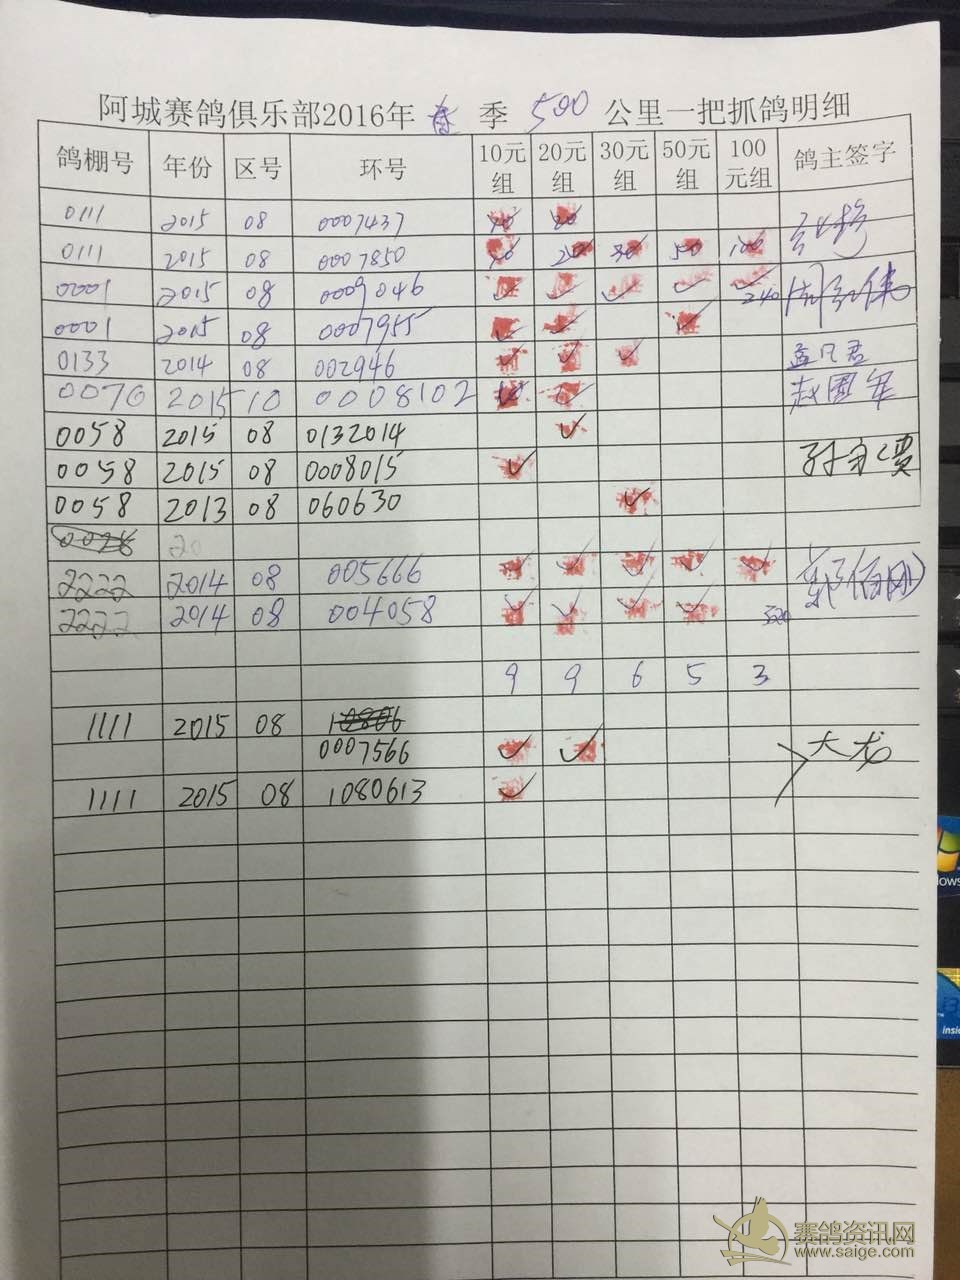 阿城赛鸽俱乐部2016年 春 季 500 公里一把抓鸽明细
鸽棚号 年份 区号 环号 10元组 20元组 30元组 50元组 100元组 鸽主签字
0111 2015 08 0007437 10 20
0111 2015 08 0007850 10 20 30 50 100
0001 2015 08 0009046 ✓ ✓ ✓ ✓ ✓ 240
0001 2015 08 0007955 ✓ ✓ ✓
0133 2014 08 002946 ✓ ✓ ✓ 孟凡君
0070 2015 10 0008102 10 ✓ 赵国军
0058 2015 08 0132014 ✓
0058 2015 08 0008015 ✓
0058 2013 08 060630 ✓
20
2222 2014 08 005666 ✓ ✓ ✓ ✓ ✓
2222 2014 08 004058 ✓ ✓ ✓ ✓ 320
9 9 6 5 3
1111 2015 08
0007566 ✓ ✓ 大龙
1111 2015 08 1080613 ✓
赛鸽资讯网
www.saige.com